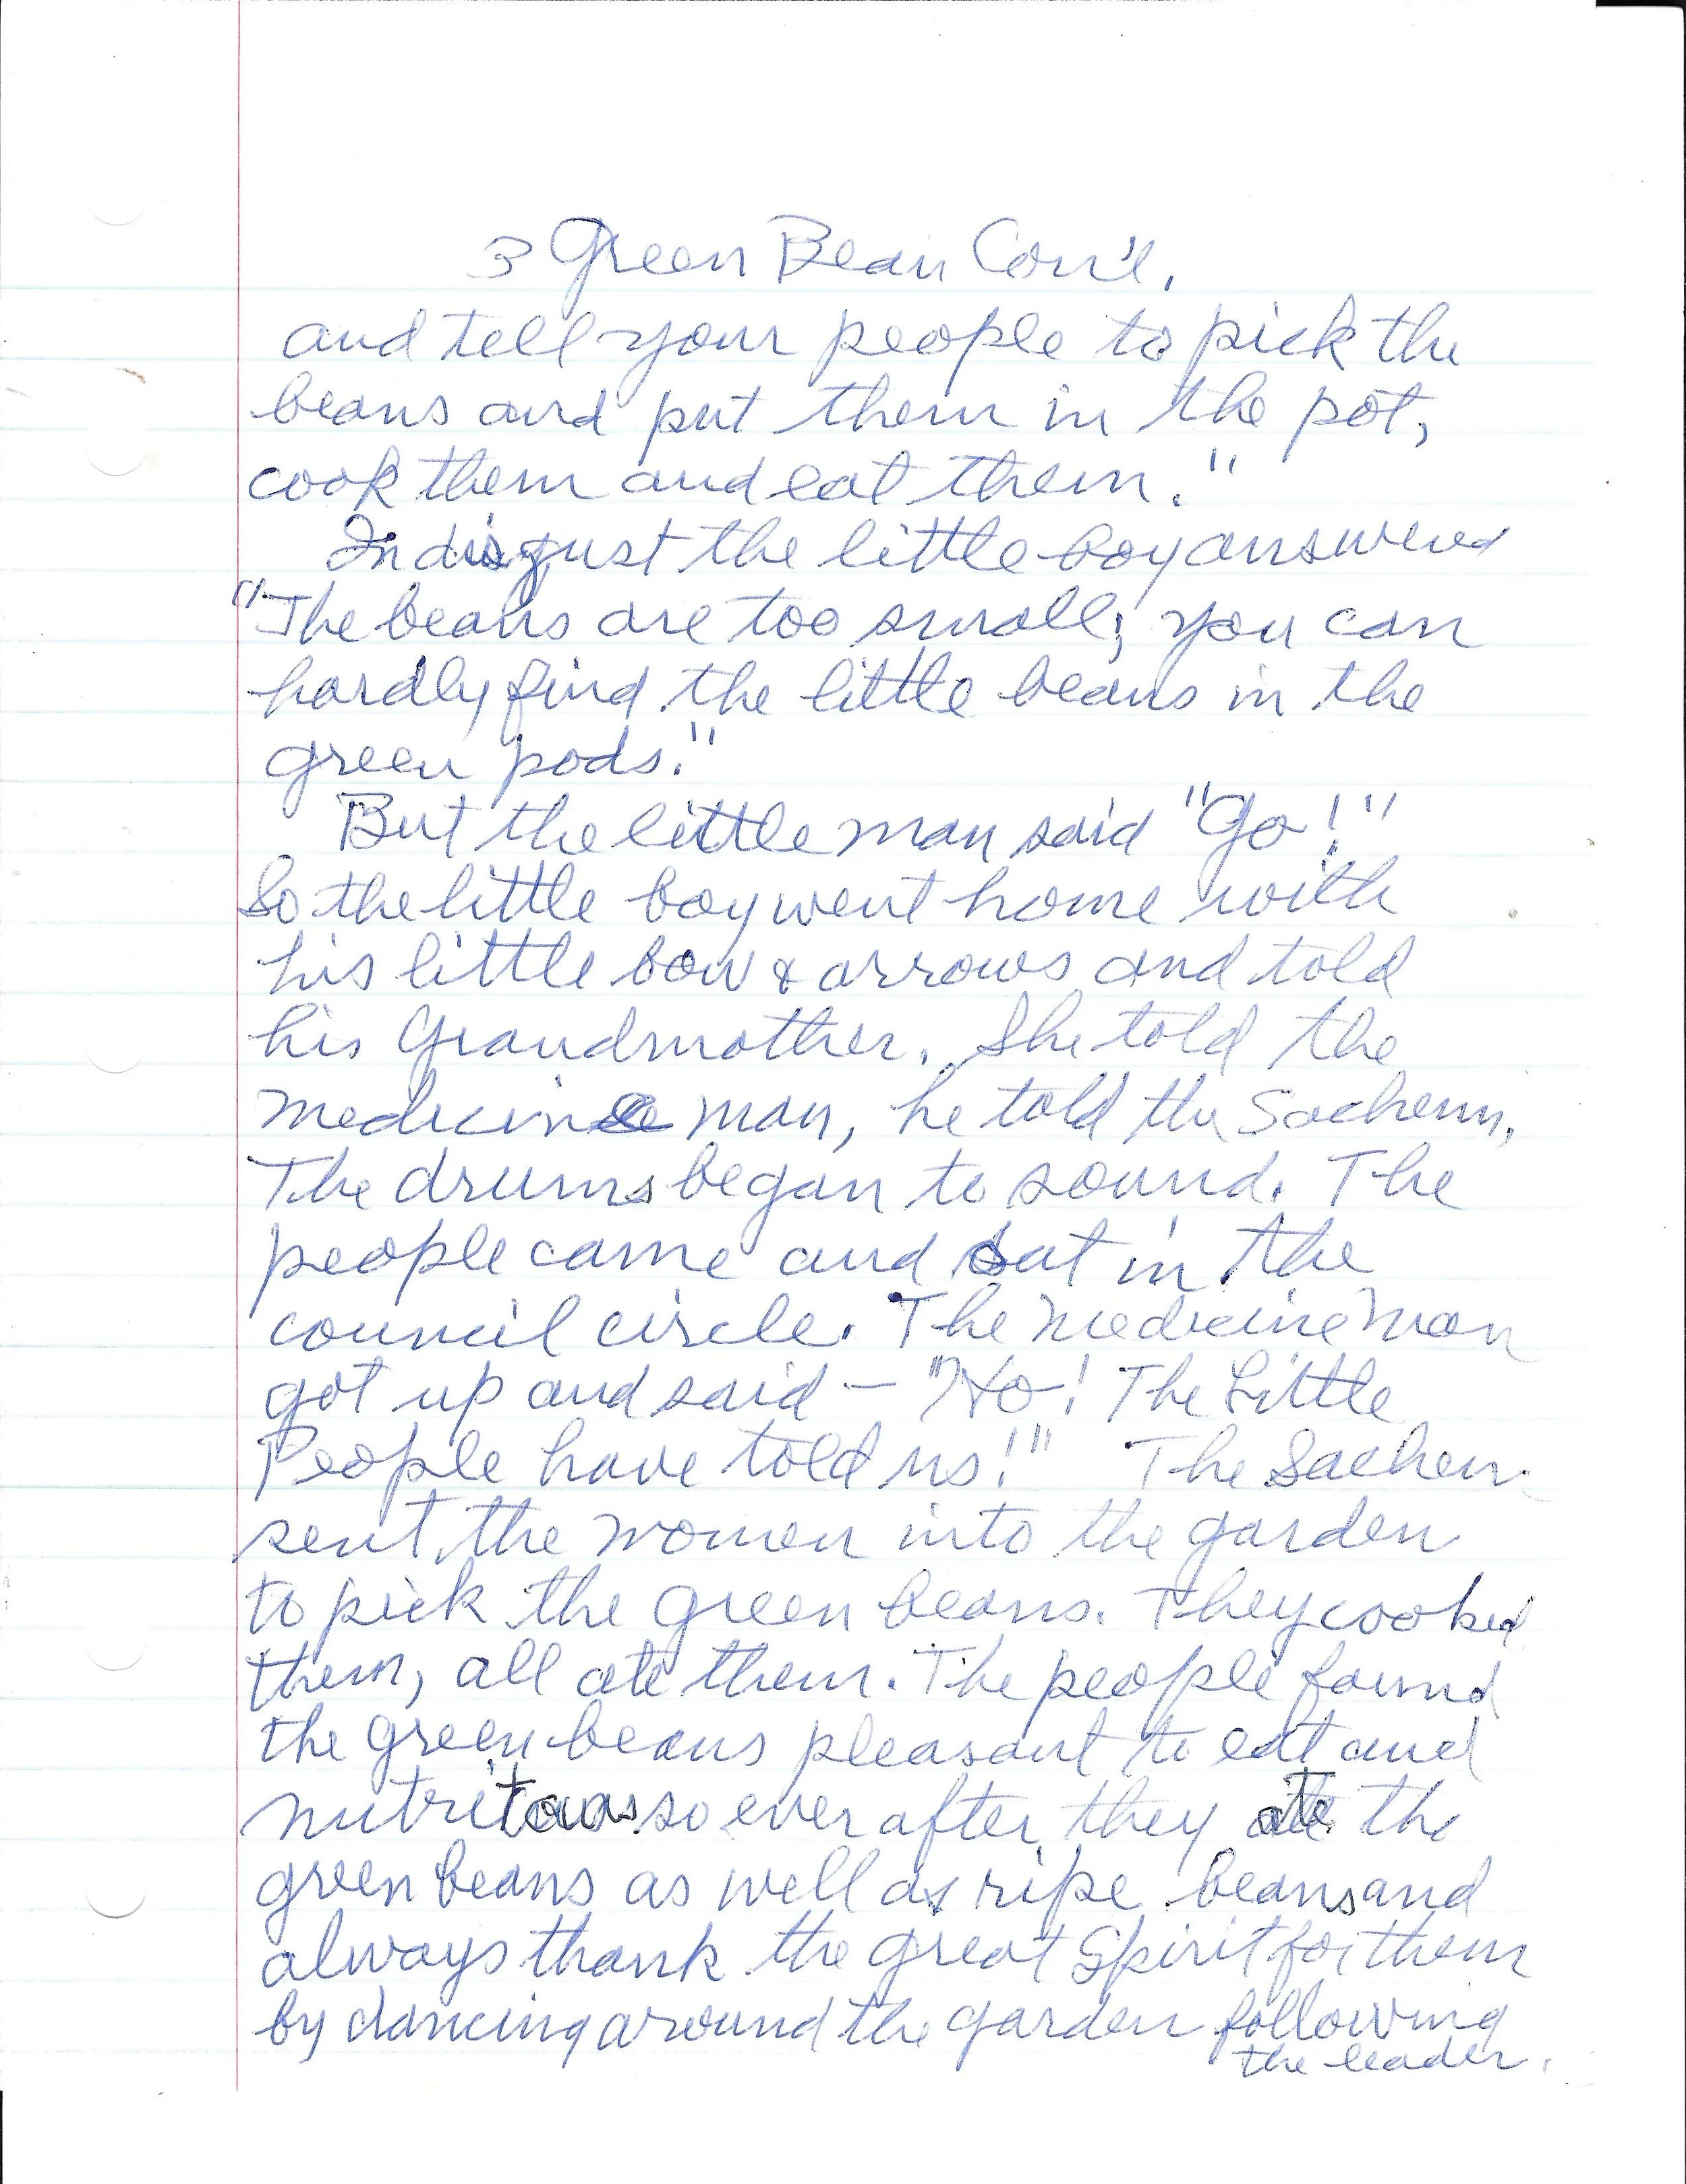 3 Green Bean Con't.
and tell your people to pick the
beans and put them in the pot,
cook them and eat them."
In disgust the little boy answered
"The beans are too small; you can
hardly find the little beans in the
green pods."
But the little man said "Go!"
So the little boy went home with
his little bow & arrows and told
his Grandmother. She told the
medicine man, he told the Sachem.
The drums began to sound. The
people came and sat in the
council circle. The Medicine Man
got up and said — "Ho! The Little
People have told us!" The Sachem
sent the women into the garden
to pick the green beans. They cooked
them, all ate them. The people found
the green beans pleasant to eat and
nutritous so ever after they ate the
green beans as well as ripe beans and
always thank the great Spirit for them
by dancing around the garden following
the leader.